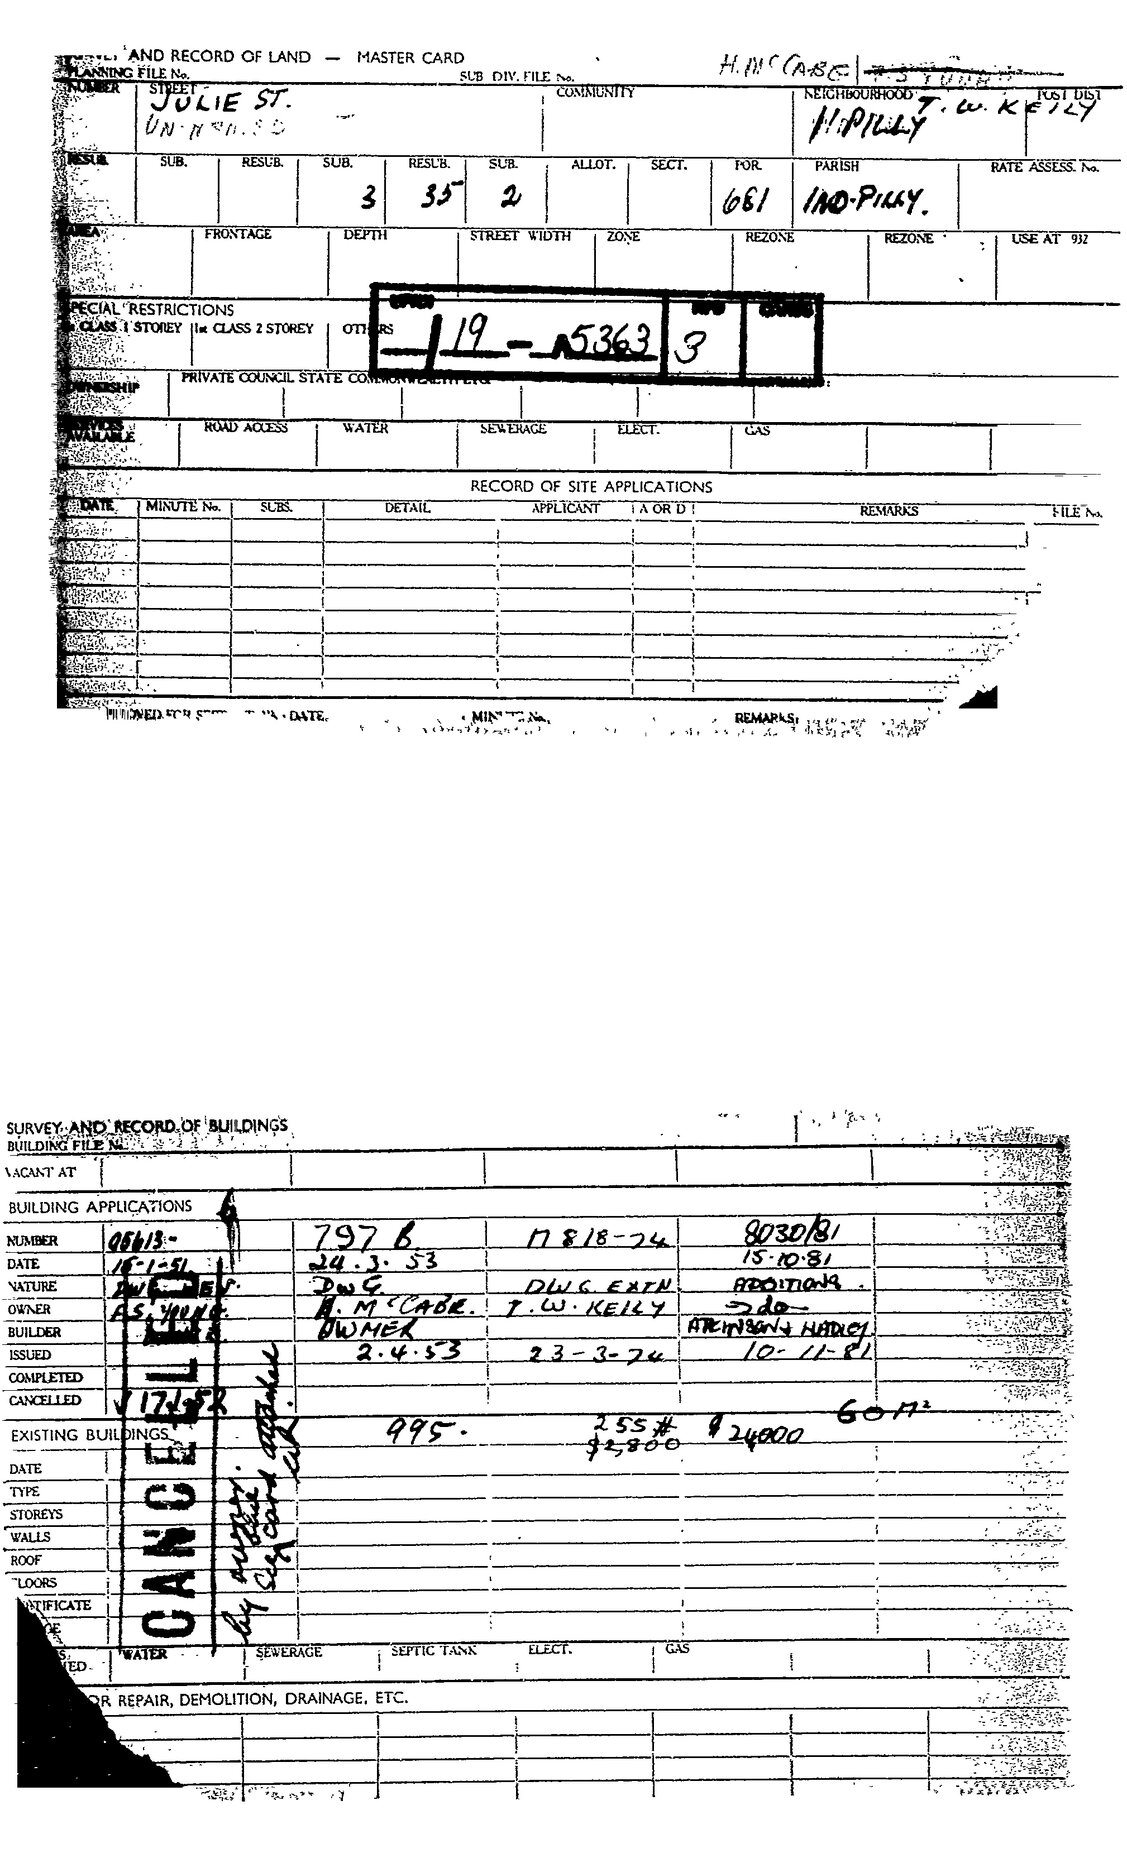 AND RECORD OF LAND — MASTER CARD
H. McCABE
PLANNING FILE No. SUB DIV. FILE No.
NUMBER STREET COMMUNITY NEIGHBOURHOOD POST DIST
JULIE ST. T. W. KEILY
I/PILLY
RESUB. SUB. RESUB. SUB. RESUB. SUB. ALLOT. SECT. POR. PARISH RATE ASSESS. No.
3 35 2 681 IND-PILLY.
AREA FRONTAGE DEPTH STREET WIDTH ZONE REZONE REZONE USE AT 932
SPECIAL RESTRICTIONS
CLASS 1 STOREY 1st CLASS 2 STOREY OTHERS
/ 19 - 5363 3
OWNERSHIP PRIVATE COUNCIL STATE COMMONWEALTH ETC
SERVICES AVAILABLE ROAD ACCESS WATER SEWERAGE ELECT. GAS
RECORD OF SITE APPLICATIONS
DATE MINUTE No. SUBS. DETAIL APPLICANT A OR D REMARKS FILE No.
DATE. MINUTE No. REMARKS:
SURVEY AND RECORD OF BUILDINGS
BUILDING FILE No.
VACANT AT
BUILDING APPLICATIONS
NUMBER 797 B 17 818-74 8030/81
DATE 24.3.53 15-10-81
NATURE DWG. DWG EXTN ADDITIONS.
OWNER F.S. YOUNG. H. McCABE. T. W. KEILY do
BUILDER OWNER ATKINSON & HADLEY
ISSUED 2.4.53 23-3-74 10-11-81
COMPLETED
CANCELLED
60 M²
EXISTING BUILDINGS 995. 255 # $24000
$2,800
DATE
TYPE
STOREYS
WALLS
ROOF
FLOORS
CANCELLED
by owner.
See card attached
WATER SEWERAGE SEPTIC TANK ELECT. GAS
OR REPAIR, DEMOLITION, DRAINAGE, ETC.